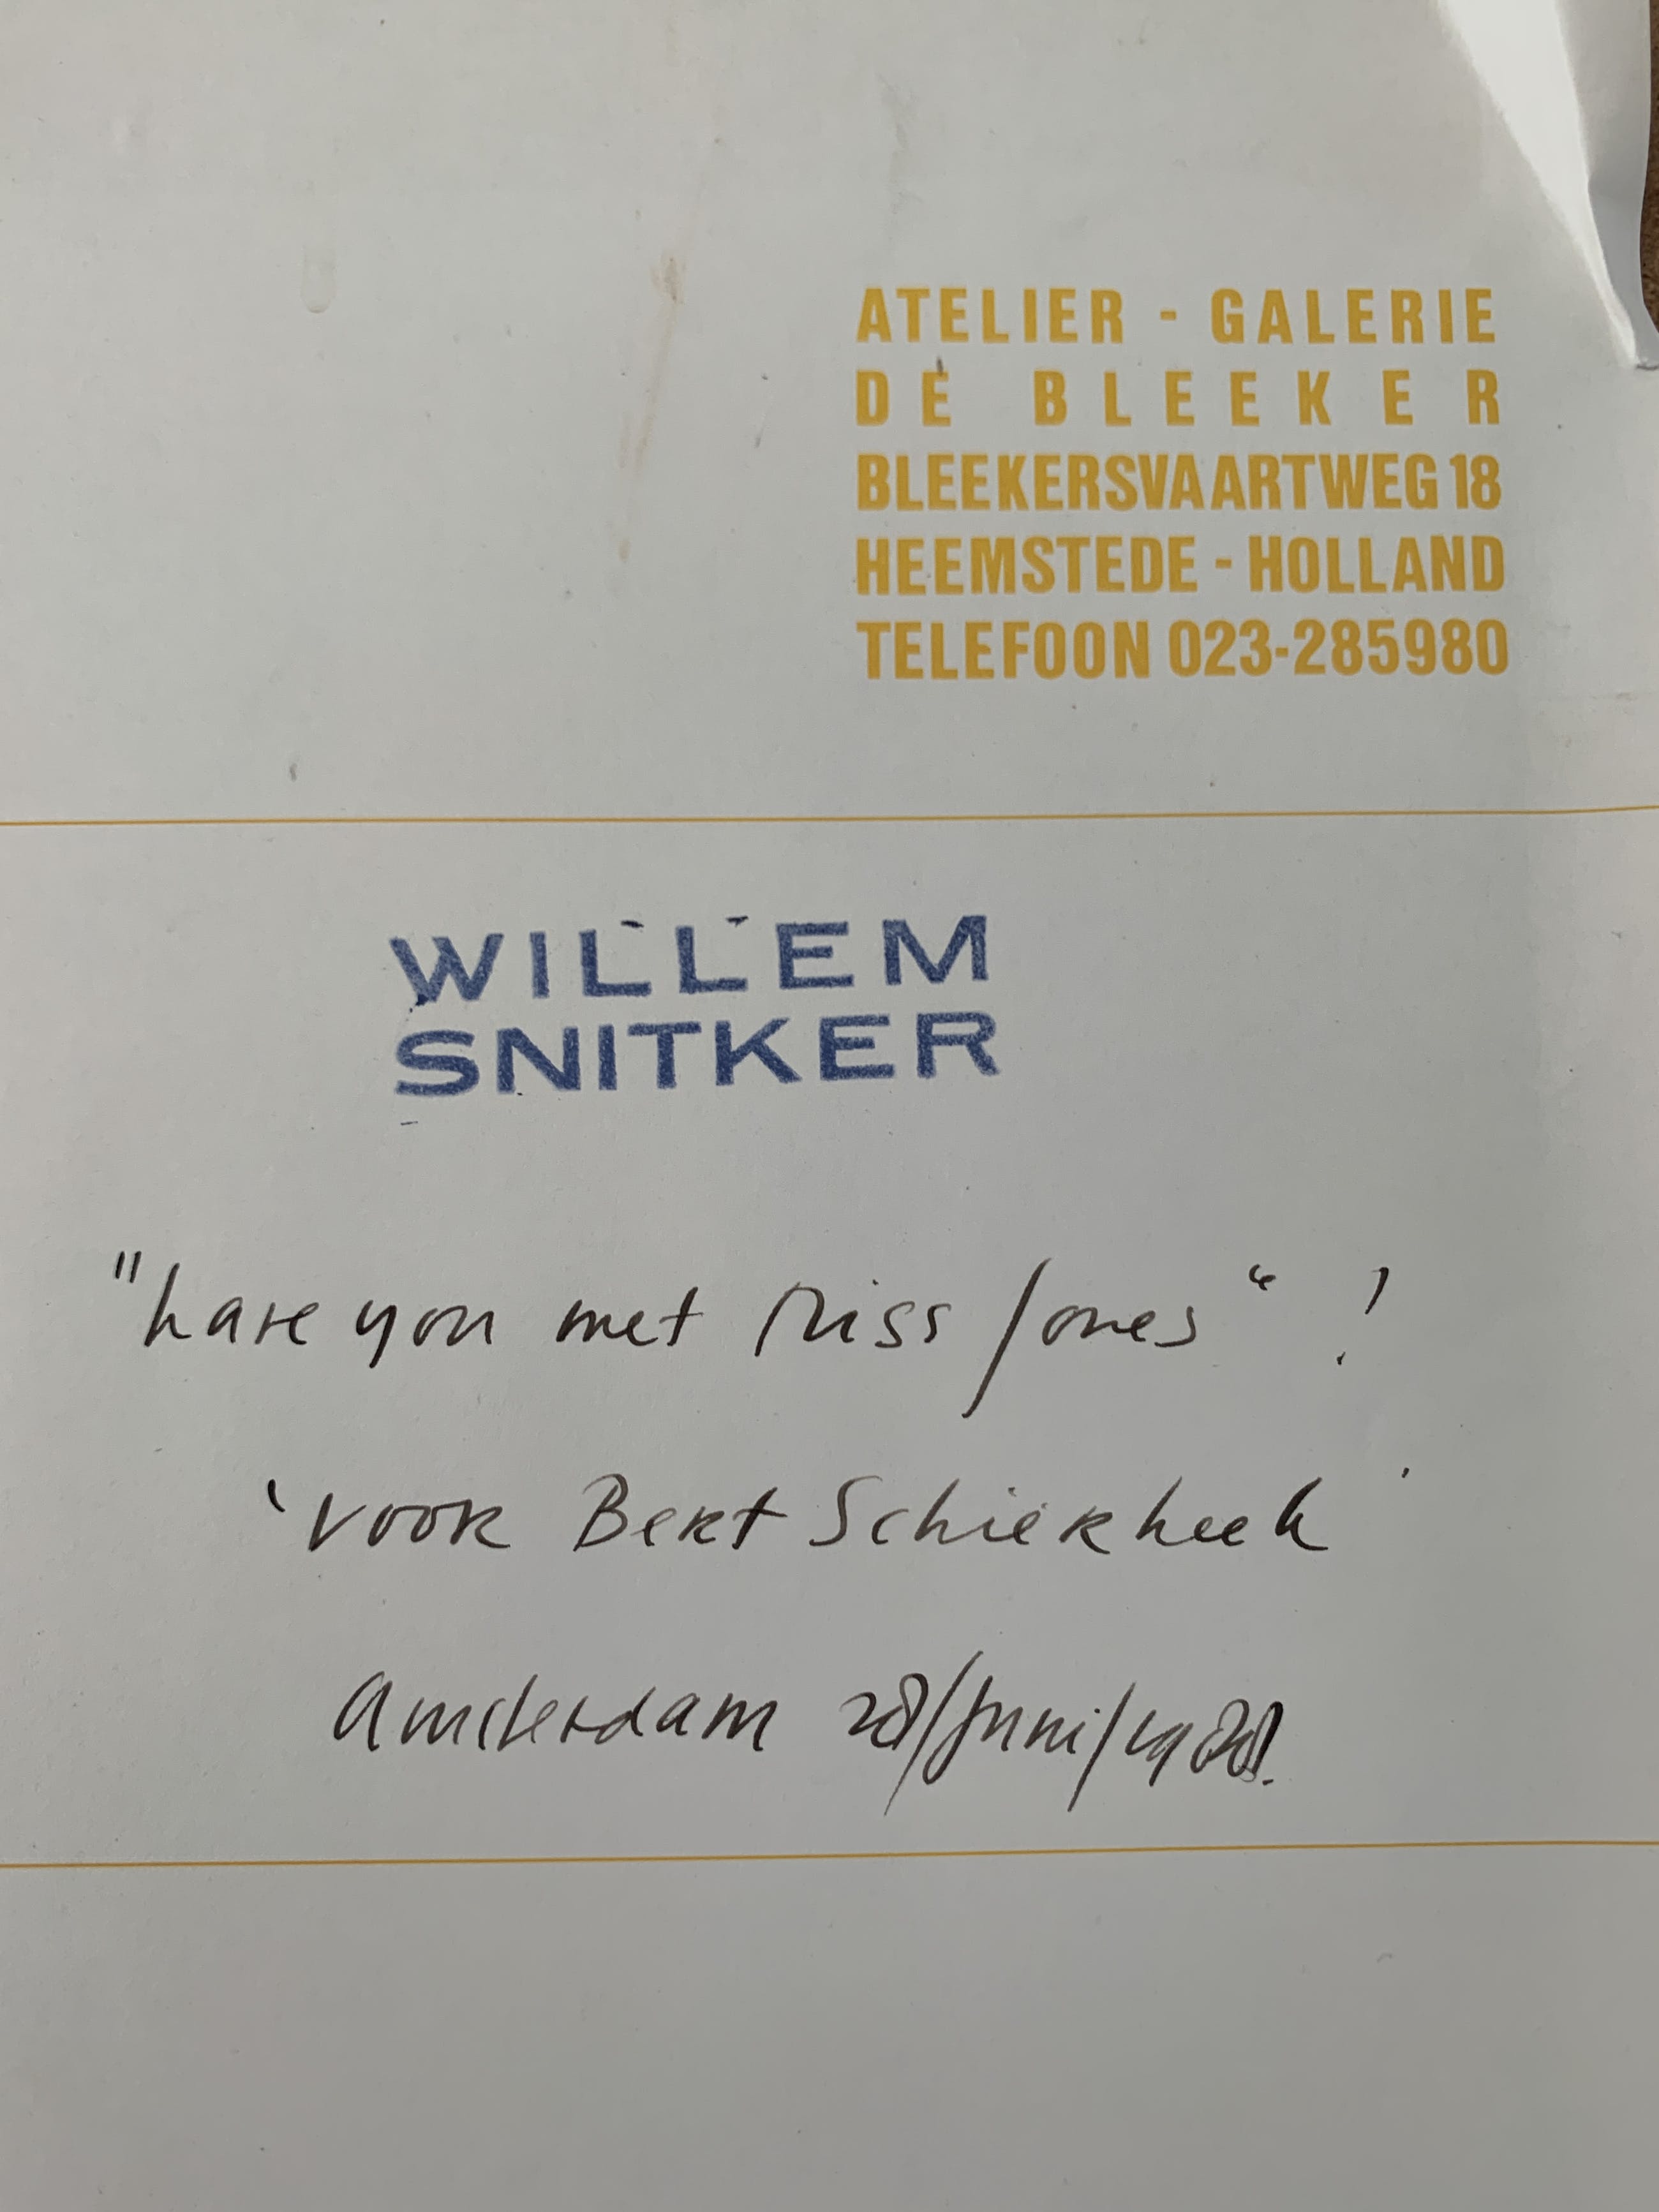 ATELIER - GALERIE
DE BLEEKER
BLEEKERSVAARTWEG 18
HEEMSTEDE - HOLLAND
TELEFOON 023-285980
WILLEM
SNITKER
"have you met Miss Jones" !
'voor Bert Schierbeek'
Amsterdam 28/juni/1988.